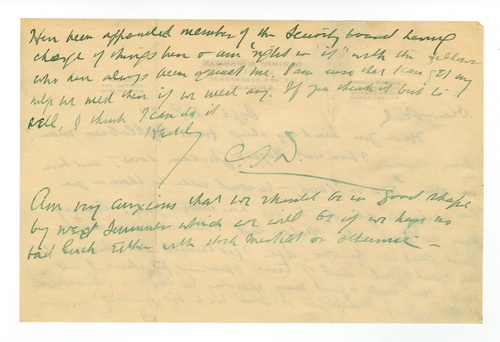 Have been appointed member of the Security board having
charge of things here & am "right in it" with the fellows
who have always been against me. I am sure that I can get any
help we need then if we need any. If you think it best to
sell, I think I can do it
Hastily
C.S.D.
Am very anxious that we should be in good shape
by next Summer which we will be if we have no
bad luck. Either with stock market or otherwise –